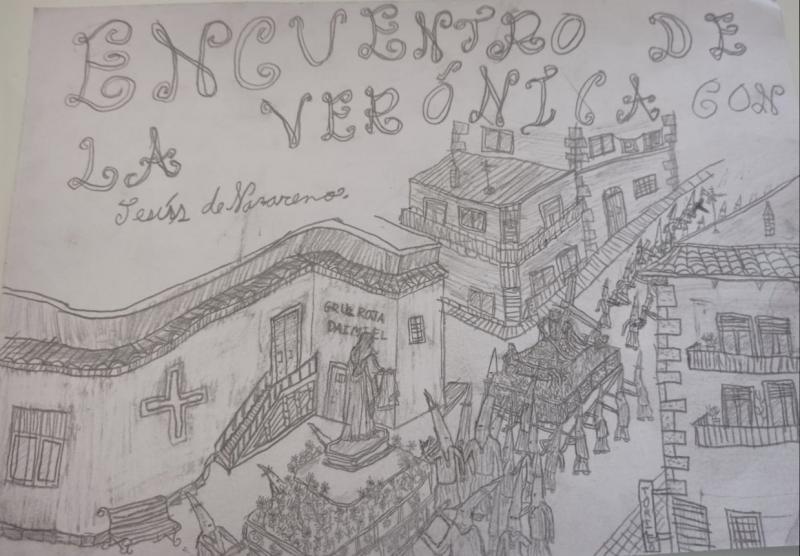 ENCUENTRO DE
LA VERÓNICA CON
Jesús de Nazareno.
CRUZ ROJA
DAIMIEL